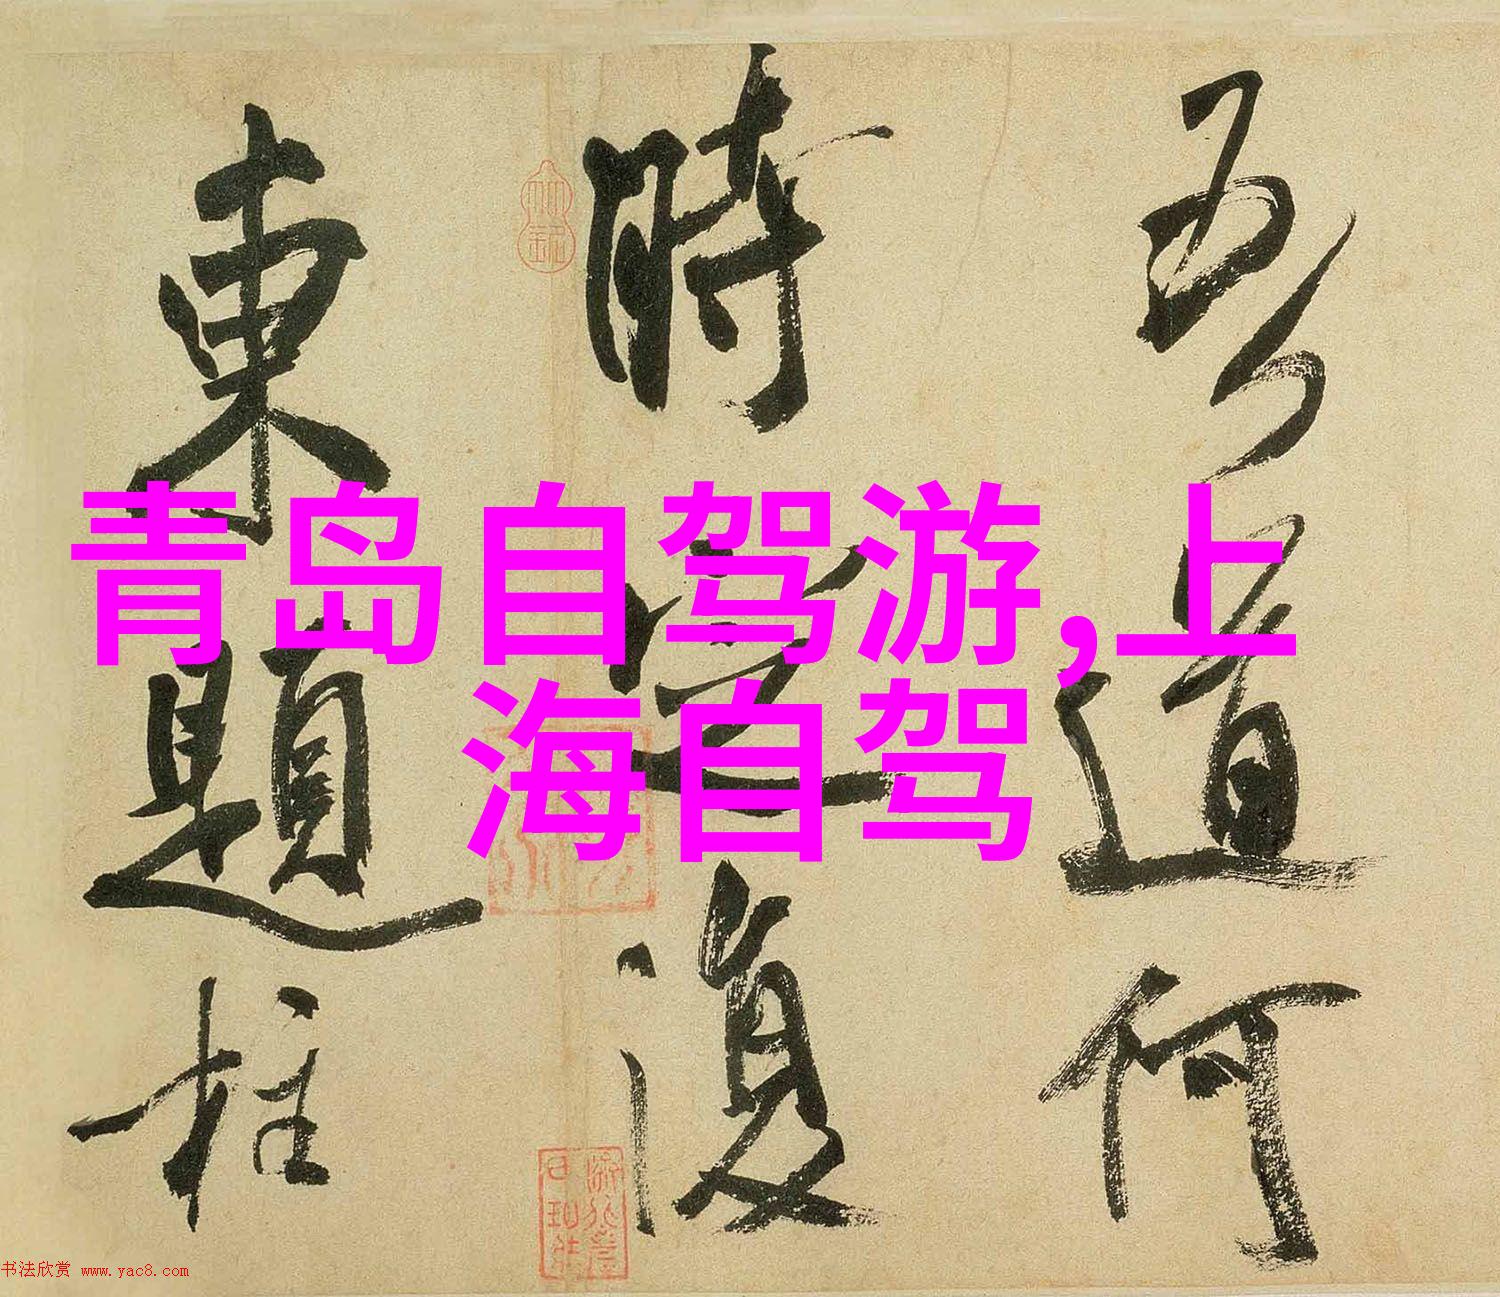 吾道何
時定復
東題柱
青岛自驾游,上
海自驾
书法欣赏 www.yac8.com